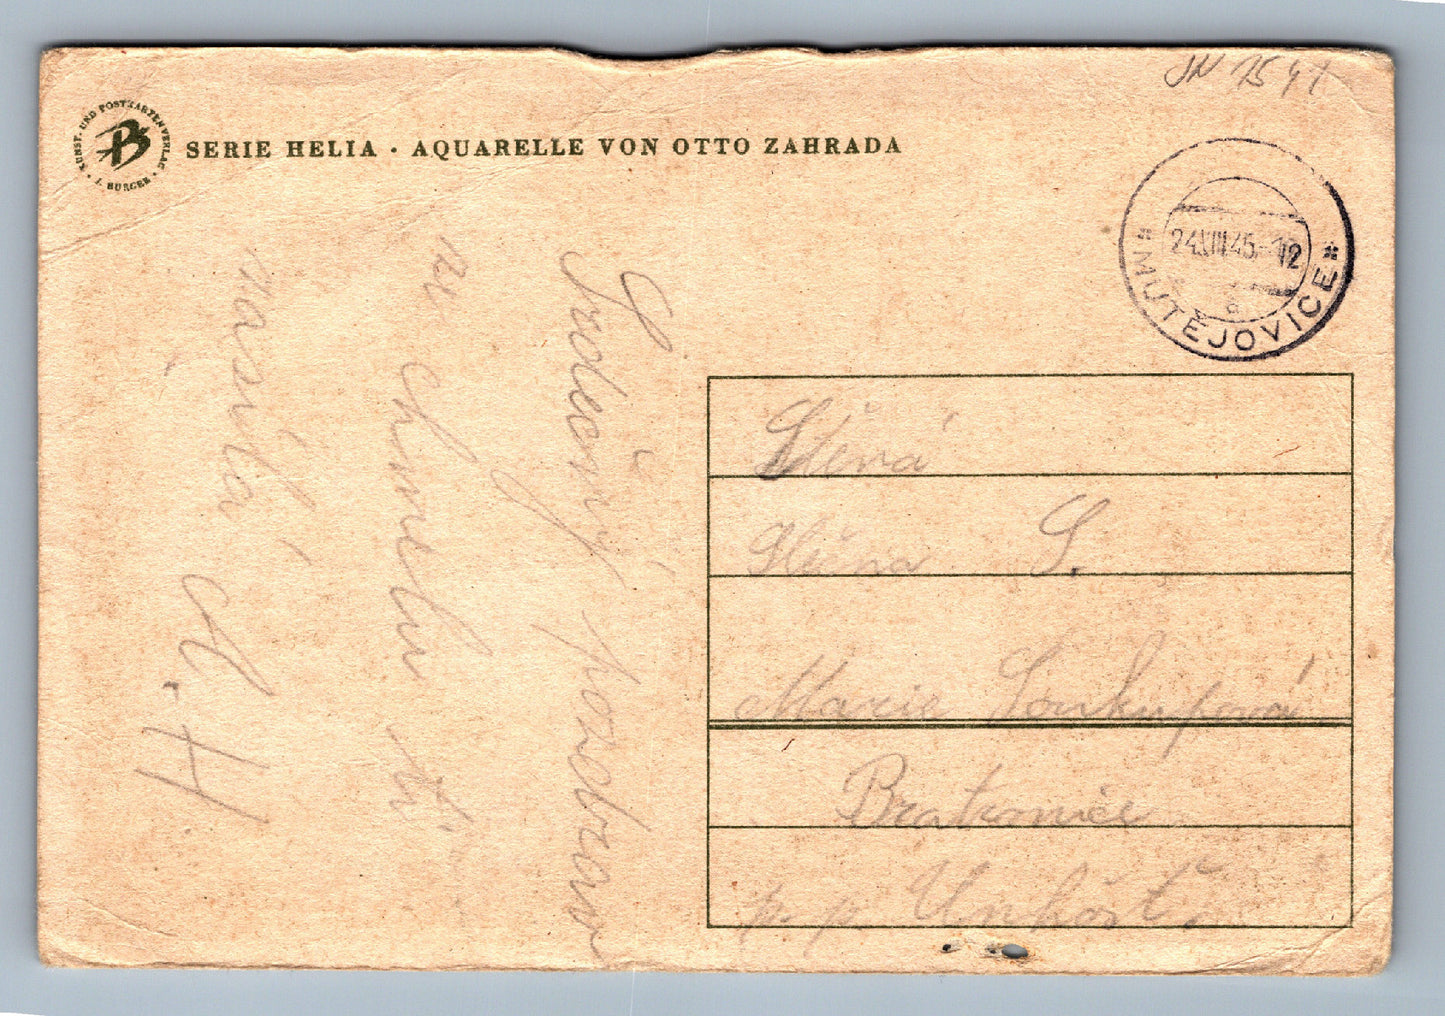 KUNST- UND POSTKARTENVERLAG • J. BURGER •
SERIE HELIA • AQUARELLE VON OTTO ZAHRADA
24.VIII.45.-12
a
* MUTĚJOVICE *
Srdečný pozdrav
z chmelu ti
zasílá A. H.
Slečna S.
Marie Soukupová
Bratronice
p. p. Unhošť.